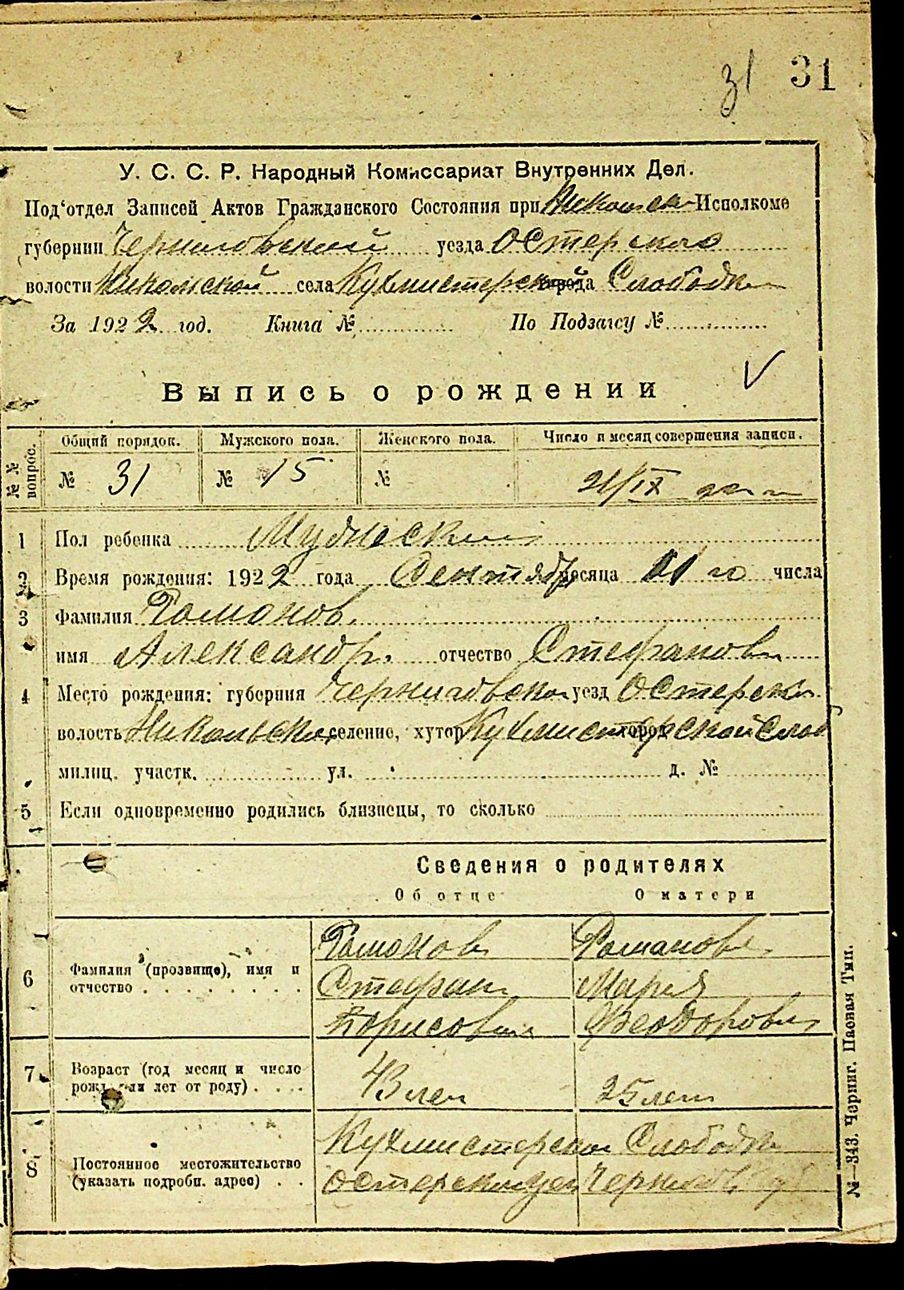 31 31
У. С. С. Р. Народный Комиссариат Внутренних Дел.
Под'отдел Записей Актов Гражданского Состояния при Исполкоме
губернии Черниговской уезда Остерского
волости Никольской села Кухмистерской города Слободки
За 1922 год. Книга № По Подзагсу №
Выпись о рождении
№№ вопрос. Общий порядок. Мужского пола. Женского пола. Число и месяц совершения записи.
№ 31 № 15 № 21/IX
1 Пол ребенка Мужской
2 Время рождения: 1922 года Сентябр месяца го числа
3 Фамилия Романов
имя Александр. отчество Стефанов
4 Место рождения: губерния Черниговской уезд Остерск
волость Никольск селение, хутор, город Кухмистерской Слоб
милиц. участк. ул. д. №
5 Если одновременно родились близнецы, то сколько
Сведения о родителях
Об отце О матери
6 Фамилия (прозвище), имя и отчество
Романов Романова
Стефан Мария
Борисович Феодоровн
7 Возраст (год месяц и число рожд. или лет от роду)
43 лет 25 лет
8 Постоянное местожительство (указать подробн. адрес)
Кухмистерской Слободки
Остерского уез Черниговск губ
№—343. Черниг. Паовая Тип.